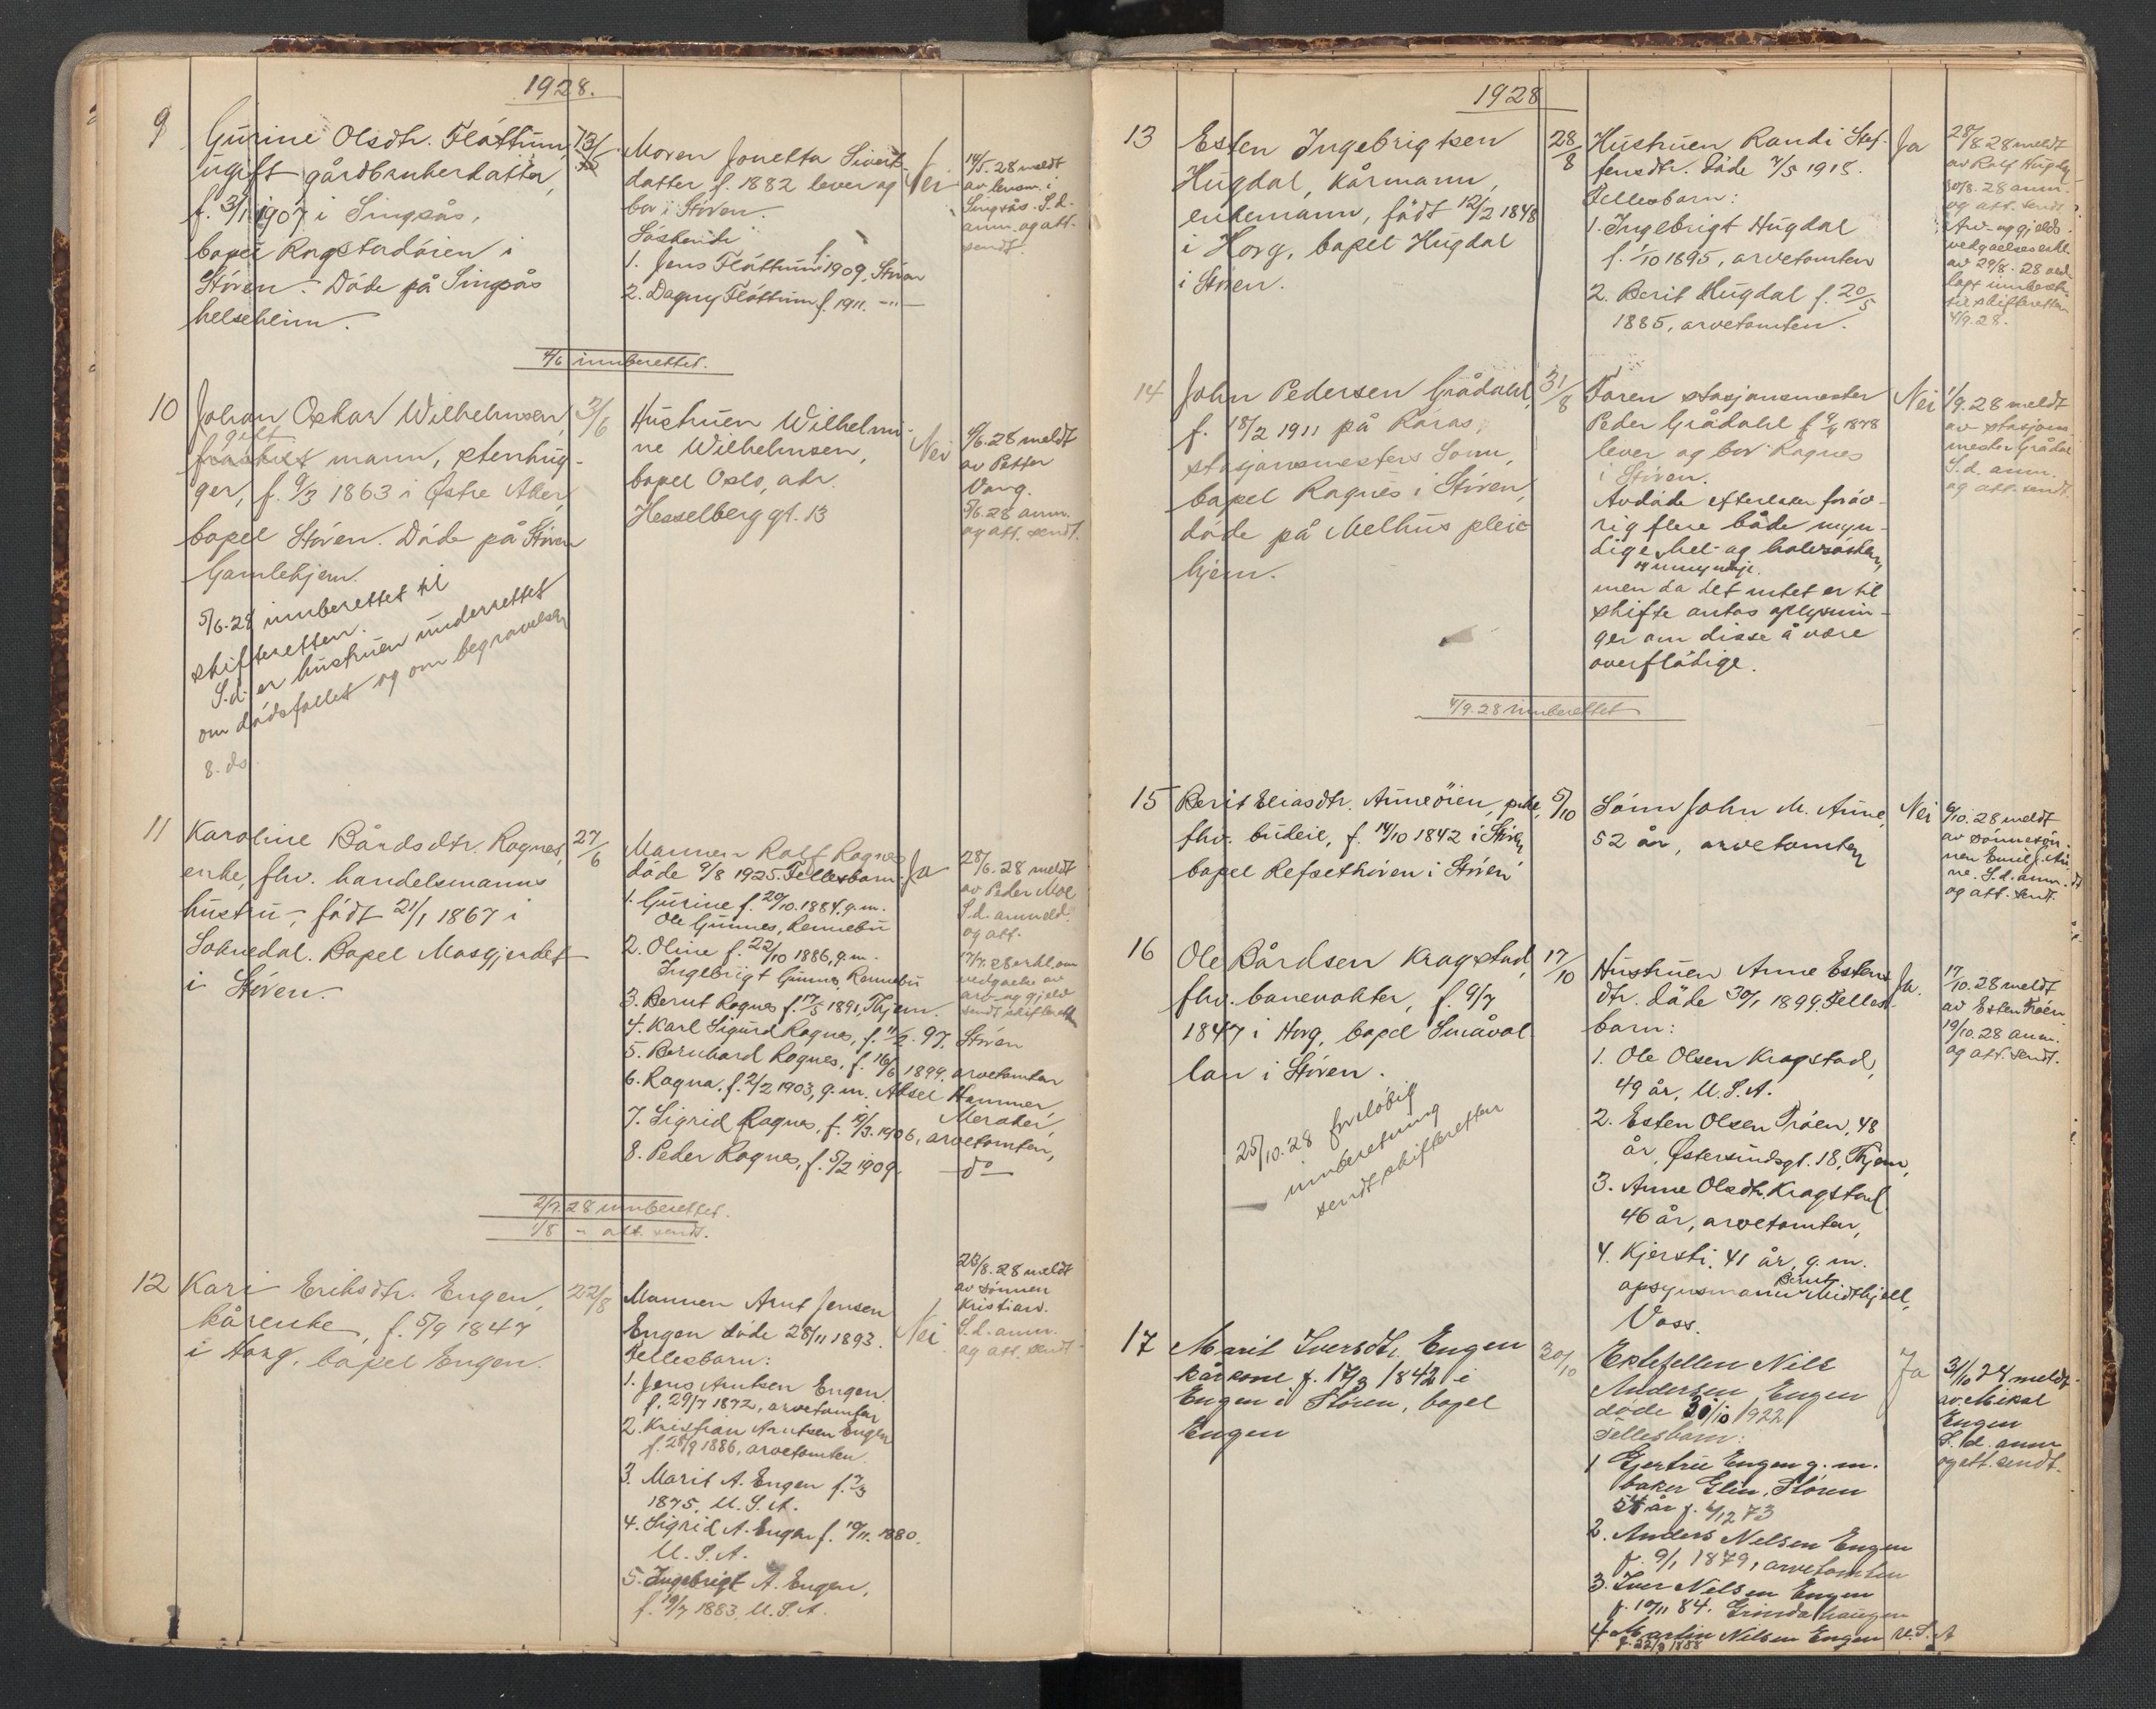 1928.
9
Gurine Olsdtr. Flåttum,
ugift gårdbrukerdatter,
f. 3/1 1907 i Singsås,
bopel Rogstadøien i
Støren. Døde på Singsås
helseheim.
13/5
Moren Jonetta Sivert-
datter f. 1882 lever og
bor i Støren.
Søskende
1. Jens Flåttum f. 1909, Støren
2. Dagny Flåttum f. 1911. —"—
Nei
14/5. 28 meldt
av lensm. i
Singsås. S.d.
anm. og att.
sendt.
4/6 innberettet.
10
Johan Oskar Wilhelmsen,
gift
fraskilt mann, stenhug-
ger, f. 9/3 1863 i Østre Aker,
bopel Støren. Døde på Støren
Gamlehjem.
5/6.28 innberettet til
skifteretten.
S.d. er hustruen underrettet
om dødsfallet og om begravelsen
8. ds.
3/6
Hustruen Wilhelmi-
ne Wilhelmsen,
bopel Oslo, adr.
Hesselberg gt. 13
Nei
4/6.28 meldt
av Petter
Vang.
5/6.28 anm.
og att. sendt.
11
Karoline Bårdsdtr. Rognes,
enke, fhv. handelsmanns
hustru, født 21/1 1867 i
Soknedal. Bopel Mosgjerdet
i Støren.
27/6
Mannen Rolf Rognes
døde 9/8 1925. Fellesbarn:
1. Gurine f. 20/10.1884, g.m.
Ole Gunnes, Rennebu
2. Oline f. 22/10 1886, g.m.
Ingebrigt Gunnes, Rennebu
3. Bernt Rognes f. 17/5 1891, Thjem.
4. Karl Sigurd Rognes, f. 11/2. 97. Støren
5. Bernhard Rognes, f. 16/6 1899. arvetomten
6. Ragna, f. 2/2 1903, g.m. Aksel Hammer,
Meraker,
7. Sigrid Rognes, f. 19/3.1906, arvetomten,
8. Peder Rognes, f. 5/2 1909. —do—
Ja
28/6.28 meldt
av Peder Moe
S.d. anmeld.
og att.
17/7.28 erkl. om
vedgåelse av
arv og gjeld
sendt skifteretten
2/7.28 innberettet.
1/8 - att. sendt.
12
Kari Eriksdtr. Engen,
kårenke, f. 5/9 1847
i Horg, bopel Engen.
22/8
Mannen Arnt Jensen
Engen døde 28/11 1893.
Fellesbarn:
1. Jens Arntsen Engen
f. 29/7 1872, arvetomten
2. Kristian Arntsen Engen
f. 28/9 1886, arvetomten.
3. Marit A. Engen f. 7/3
1875. U.S.A.
4. Sigrid A. Engen f. 19/11. 1880.
U.S.A.
5. Ingebrigt A. Engen,
f. 19/7 1883, U.S.A.
Nei
23/8.28 meldt
av sønnen
Kristian.
S.d. anm.
og att. sendt
1928
13
Esten Ingebrigtsen
Hugdal, kårmann,
enkemann, født 12/2 1848
i Horg, bopel Hugdal
i Støren.
28/8
Hustruen Randi Stef-
fensdtr. døde 7/5 1918.
Fellesbarn:
1. Ingebrigt Hugdal
f. 1/10 1895, arvetomten
2. Berit Hugdal f. 20/5
1885, arvetomten.
Ja
28/8 28 meldt
av Rolf Hugdal
30/8. 28 anm.
og att. sendt
Arv- og gjelds-
vedgåelseserkl.
av 29/8. 28 ved-
lagt innberetn.
til skifteretten
4/9.28.
14
John Pedersen Grådahl,
f. 18/2 1911 på Røros,
stasjonsmesters sønn,
bopel Rognes i Støren,
døde på Melhus pleie-
hjem.
31/8
Faren stasjonsmester
Peder Grådahl f. 9/4 1878
lever og bor Rognes
i Støren.
Avdøde efterlater forøv-
rig flere både myn-
dige hel- og halvsøsken,
og umyndige.
men da det intet er til
skifte antas oplysnin-
ger om disse å være
overflødige.
Nei
1/9.28 meldt
av stasjons-
mester Grådal
S.d. anm.
og att. sendt.
4/9.28 innberettet
15
Berit Eliasdtr. Anneøien, enke,
fhv. budeie, f. 14/10 1842 i Støren,
bopel Refsethøven i Støren
5/10
Sønn John M. Anne,
52 år, arvetomten
Nei
6/10.28 meldt
av sønnesøn-
nen Emil J. An-
ne. S.d. anm.
og att. sendt.
16
Ole Bårdsen Kragstad,
fhv. banevokter, f. 9/7
1847 i Horg, bopel Småvol-
lan i Støren.
25/10.28 foreløbig
innberetning
sendt skifteretten
17/10
Hustruen Anne Estens-
dtr. døde 30/1 1899. Felles-
barn:
1. Ole Olsen Kragstad,
49 år, U.S.A.
2. Esten Olsen Trøen, 48
år, Østersundsgt. 18, Thjem,
3. Anne Olsdtr. Kragstad
46 år, arvetomten,
4. Kjersti, 41 år, g.m.
Bernt
opsynsmann Midthjell,
Voss.
Ja.
17/10.28 meldt
av Esten Trøen
19/10.28 anm.
og att. sendt.
17
Marit Iversdtr. Engen
kårkone f. 17/3 1842 i
Engen i Støren, bopel
Engen
30/10
Ektefellen Nils
Andersen Engen
døde 30/10 1922
Fellesbarn:
1 Gjertru Engen g.m.
baker Glin, Støren
54 år f. 4/12 73
2. Anders Nilsen Engen
f. 9/1 1879, arvetomten
3. Iver Nilsen Engen
f. 10/11 84. Grindalhaugen
4. Martin Nilsen Engen U.S.A
f. 22/9 1888
Ja
31/10 28 meldt
av Mikal
Engen
S. d. anm
og att. sendt.